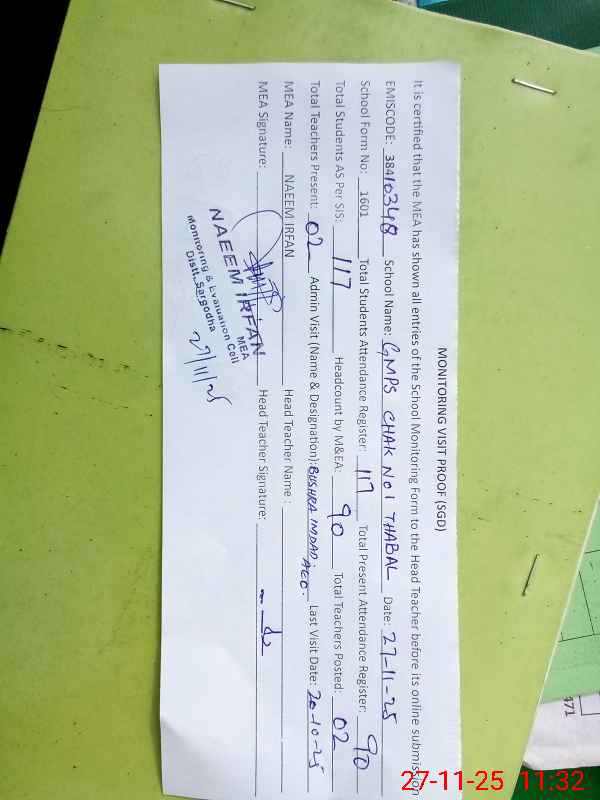 MONITORING VISIT PROOF (SGD)
It is certified that the MEA has shown all entries of the School Monitoring Form to the Head Teacher before its online submission
EMISCODE: 38410348 School Name: GMPS CHAK NO 1 THABAL Date: 27-11-25
School Form No: 1601 Total Students Attendance Register: 117 Total Present Attendance Register: 90
Total Students AS Per SIS: 117 Headcount by M&EA: 90 Total Teachers Posted: 02
Total Teachers Present: 02 Admin Visit (Name & Designation): BUSHRA IMDAD AEO. Last Visit Date: 20-10-25
MEA Name: NAEEM IRFAN Head Teacher Name :
MEA Signature: Head Teacher Signature:
NAEEM IRFAN
MEA
Monitoring & Evaluation Cell
Distt. Sargodha
27/11/25
471
27-11-25 11:32